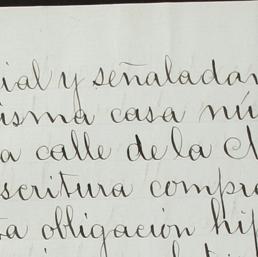 ial y señaladan
isma casa nú
a calle de la
scritura compr
ta obligación hip